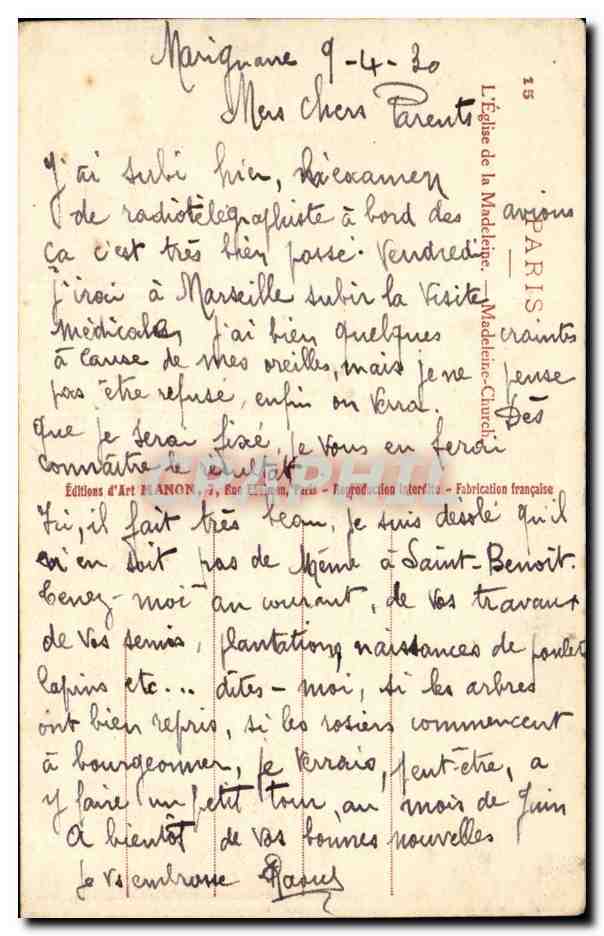 Marignane 9-4-30
Mes chers Parents
J'ai subi hier, l'examen
de radiotélégraphiste à bord des avions
ça c'est très bien passé. Vendredi
j'irai à Marseille subir la visite
médicale, j'ai bien quelques craintes
à cause de mes oreilles, mais je ne pense
pas être refusé, enfin on verra. Dès
que je serai fixé, je vous en ferai
connaître le résultat
Ici, il fait très beau, je suis désolé qu'il
n'en soit pas de même à Saint-Benoît.
Tenez-moi au courant, de vos travaux
de vos semis, plantations, naissances de poulets
lapins etc... dites-moi, si les arbres
ont bien repris, si les rosiers commencent
à bourgeonner, je verrais, peut-être, a
y faire un petit tour, au mois de Juin
A bientôt de vos bonnes nouvelles
Je vs embrasse Raoul
15
PARIS
L'Église de la Madeleine. — Madeleine-Church
Éditions d'Art MANON, Rue Paris - Reproduction interdite - Fabrication française